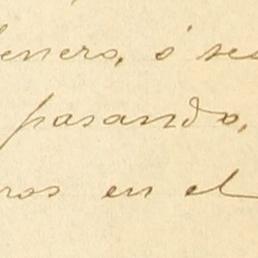 enero, ó se
pasando,
ros en el